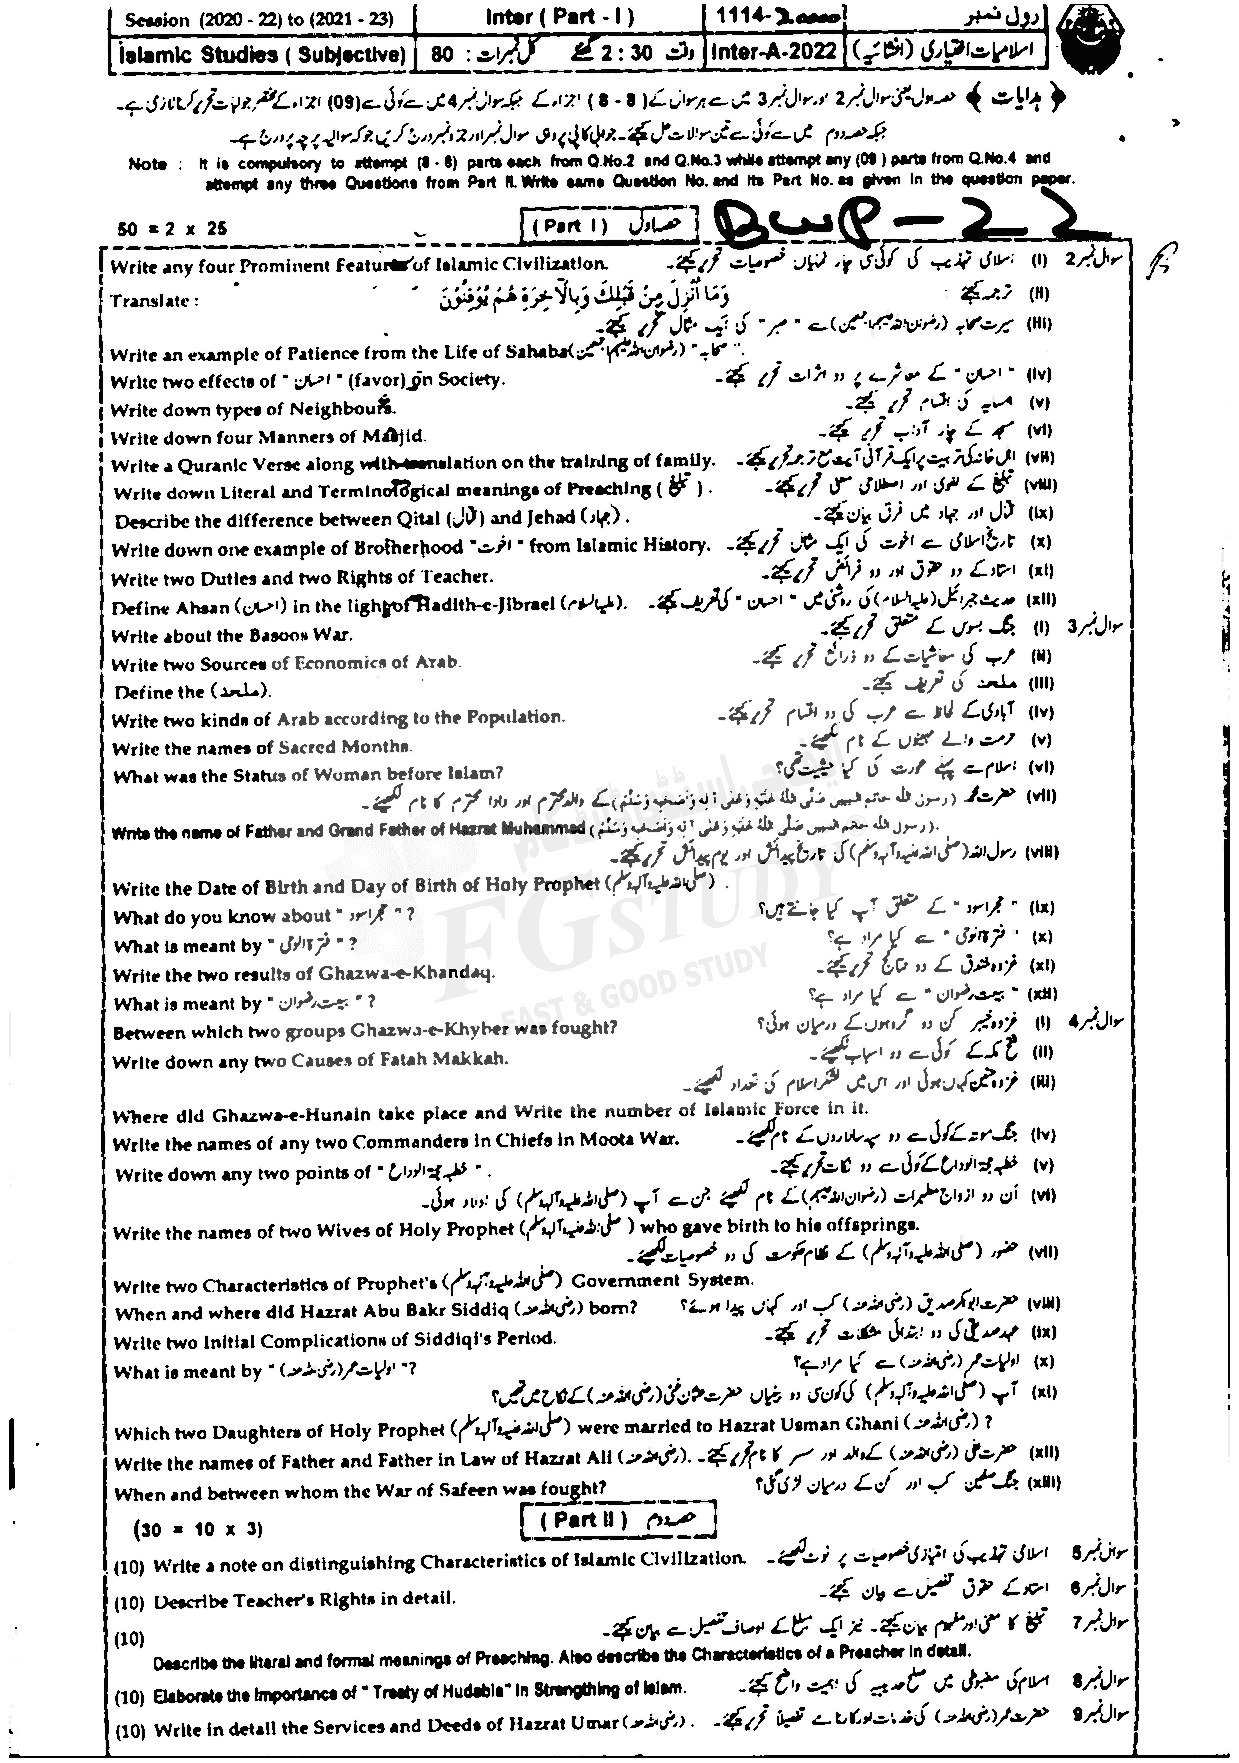 Session (2020 - 22) to (2021 - 23) Inter ( Part - I ) 1114- رول نمبر
Islamic Studies ( Subjective) کل نمبرات : 80 وقت 2 : 30 گھنٹے Inter-A-2022 اسلامیات اختیاری (انشائیہ)
﴿ ہدایات ﴾ حصہ اول یعنی سوال نمبر 2 اور سوال نمبر 3 میں سے ہر سوال کے (8 - 8) اجزاء کے جبکہ سوال نمبر 4 میں سے کوئی سے (09) اجزاء کے مختصر جوابات تحریر کرنا لازمی ہے۔
جبکہ حصہ دوم میں سے کوئی سے تین سوالات حل کیجئے۔ جوابی کاپی پر وہی سوال نمبر اور جزو نمبر درج کریں جو کہ سوالیہ پرچہ پر درج ہے۔
Note : It is compulsory to attempt (8 - 8) parts each from Q.No.2 and Q.No.3 while attempt any (09 ) parts from Q.No.4 and
attempt any three Questions from Part II. Write same Question No. and its Part No. as given in the question paper.
50 = 2 x 25 (Part I ) حصہ اول BWP-22
Write any four Prominent Features of Islamic Civilization. سوال نمبر 2 (i) اسلامی تہذیب کی کوئی سی چار نمایاں خصوصیات تحریر کیجئے۔
Translate : وَمَا أُنْزِلَ مِنْ قَبْلِكَ وَبِالْآخِرَةِ هُمْ يُوقِنُوْنَ (ii) ترجمہ کیجئے
(iii) سیرت صحابہ (رضوان اللہ علیہم اجمعین) سے "صبر" کی ایک مثال تحریر کیجئے۔
Write an example of Patience from the Life of Sahaba(رضوان اللہ علیہم اجمعین) "صحابہ".
Write two effects of "احسان" (favor) on Society. (iv) "احسان" کے معاشرے پر دو اثرات تحریر کیجئے۔
Write down types of Neighbours. (v) ہمسایہ کی اقسام تحریر کیجئے۔
Write down four Manners of Masjid. (vi) مسجد کے چار آداب تحریر کیجئے۔
Write a Quranic Verse along with translation on the training of family. (vii) اہل خانہ کی تربیت پر ایک قرآنی آیت مع ترجمہ تحریر کیجئے۔
Write down Literal and Terminological meanings of Preaching ( تبلیغ ) . (viii) تبلیغ کے لغوی اور اصطلاحی معنی تحریر کیجئے۔
Describe the difference between Qital (قتال) and Jehad (جہاد) . (ix) قتال اور جہاد میں فرق بیان کیجئے۔
Write down one example of Brotherhood "اخوت" from Islamic History. (x) تاریخ اسلامی سے اخوت کی ایک مثال تحریر کیجئے۔
Write two Duties and two Rights of Teacher. (xi) استاد کے دو حقوق اور دو فرائض تحریر کیجئے۔
Define Ahsan (احسان) in the light of Hadith-e-Jibrael (علیہ السلام). (xii) حدیث جبرائیل (علیہ السلام) کی روشنی میں "احسان" کی تعریف کیجئے۔
Write about the Basoos War. سوال نمبر 3 (i) جنگ بسوس کے متعلق تحریر کیجئے۔
Write two Sources of Economics of Arab. (ii) عرب کی معاشیات کے دو ذرائع تحریر کیجئے۔
Define the (ملحد). (iii) ملحد کی تعریف کیجئے۔
Write two kinds of Arab according to the Population. (iv) آبادی کے لحاظ سے عرب کی دو اقسام تحریر کیجئے۔
Write the names of Sacred Months. (v) حرمت والے مہینوں کے نام لکھیئے۔
What was the Status of Woman before Islam? (vi) اسلام سے پہلے عورت کی کیا حیثیت تھی؟
(vii) حضرت محمد (رسول اللہ خاتم النبیین صَلَّی اللہُ عَلَیْہِ وَعَلٰی آلِہٖ وَاَصْحَابِہٖ وَسَلَّمَ) کے والد محترم اور دادا محترم کا نام لکھیئے۔
Write the name of Father and Grand Father of Hazrat Muhammad (رسول اللہ خاتم النبیین صَلَّی اللہُ عَلَیْہِ وَعَلٰی آلِہٖ وَاَصْحَابِہٖ وَسَلَّمَ).
(viii) رسول اللہ (صلی اللہ علیہ وآلہ وسلم) کی تاریخ پیدائش اور یوم پیدائش تحریر کیجئے۔
Write the Date of Birth and Day of Birth of Holy Prophet (صلی اللہ علیہ وآلہ وسلم) .
What do you know about "حجر اسود" ? (ix) "حجر اسود" کے متعلق آپ کیا جانتے ہیں؟
What is meant by "فترۃ الوحی" ? (x) "فترۃ الوحی" سے کیا مراد ہے؟
Write the two results of Ghazwa-e-Khandaq. (xi) غزوہ خندق کے دو نتائج تحریر کیجئے۔
What is meant by "بیعت رضوان" ? (xii) "بیعت رضوان" سے کیا مراد ہے؟
Between which two groups Ghazwa-e-Khyber was fought? سوال نمبر 4 (i) غزوہ خیبر کن دو گروہوں کے درمیان ہوئی؟
Write down any two Causes of Fatah Makkah. (ii) فتح مکہ کے کوئی سے دو اسباب لکھیئے۔
(iii) غزوہ حنین کہاں ہوئی اور اس میں لشکر اسلام کی تعداد لکھیئے۔
Where did Ghazwa-e-Hunain take place and Write the number of Islamic Force in it.
Write the names of any two Commanders in Chiefs in Moota War. (iv) جنگ موتہ کے کوئی سے دو سپہ سالاروں کے نام لکھیئے۔
Write down any two points of "خطبہ حجۃ الوداع" . (v) خطبہ حجۃ الوداع کے کوئی سے دو نکات تحریر کیجئے۔
(vi) اُن دو ازواج مطہرات (رضوان اللہ علیہم) کے نام لکھیئے جن سے آپ (صلی اللہ علیہ وآلہ وسلم) کی اولاد ہوئی۔
Write the names of two Wives of Holy Prophet (صلی اللہ علیہ وآلہ وسلم) who gave birth to his offsprings.
(vii) حضور (صلی اللہ علیہ وآلہ وسلم) کے نظام حکومت کی دو خصوصیات لکھیئے۔
Write two Characteristics of Prophet's (صلی اللہ علیہ وآلہ وسلم) Government System.
When and where did Hazrat Abu Bakr Siddiq (رضی اللہ عنہ) born? (viii) حضرت ابوبکر صدیق (رضی اللہ عنہ) کب اور کہاں پیدا ہوئے؟
Write two Initial Complications of Siddiqi's Period. (ix) عہد صدیقی کی دو ابتدائی مشکلات تحریر کیجئے۔
What is meant by "اولیات عمر (رضی اللہ عنہ)"? (x) اولیات عمر (رضی اللہ عنہ) سے کیا مراد ہے؟
(xi) آپ (صلی اللہ علیہ وآلہ وسلم) کی کون سی دو بیٹیاں حضرت عثمان غنی (رضی اللہ عنہ) کے نکاح میں تھیں؟
Which two Daughters of Holy Prophet (صلی اللہ علیہ وآلہ وسلم) were married to Hazrat Usman Ghani (رضی اللہ عنہ) ?
Write the names of Father and Father in Law of Hazrat Ali (رضی اللہ عنہ). (xii) حضرت علی (رضی اللہ عنہ) کے والد اور سسر کا نام تحریر کیجئے۔
When and between whom the War of Safeen was fought? (xiii) جنگ صفین کب اور کن کے درمیان لڑی گئی؟
(30 = 10 x 3) ( Part II ) حصہ دوم
(10) Write a note on distinguishing Characteristics of Islamic Civilization. سوال نمبر 5 اسلامی تہذیب کی امتیازی خصوصیات پر نوٹ لکھیئے۔
(10) Describe Teacher's Rights in detail. سوال نمبر 6 استاد کے حقوق تفصیل سے بیان کیجئے۔
(10) سوال نمبر 7 تبلیغ کا معنی اور مفہوم بیان کیجئے۔ نیز ایک مبلغ کے اوصاف تفصیل سے بیان کیجئے۔
Describe the literal and formal meanings of Preaching. Also describe the Characteristics of a Preacher in detail.
(10) Elaborate the Importance of " Treaty of Hudabia" in Strengthing of Islam. سوال نمبر 8 اسلام کی مضبوطی میں صلح حدیبیہ کی اہمیت واضح کیجئے۔
(10) Write in detail the Services and Deeds of Hazrat Umar (رضی اللہ عنہ) . سوال نمبر 9 حضرت عمر (رضی اللہ عنہ) کی خدمات اور کارنامے تفصیلاً تحریر کیجئے۔
ایف جی اسٹڈی ڈاٹ کام
FGSTUDY
FAST & GOOD STUDY